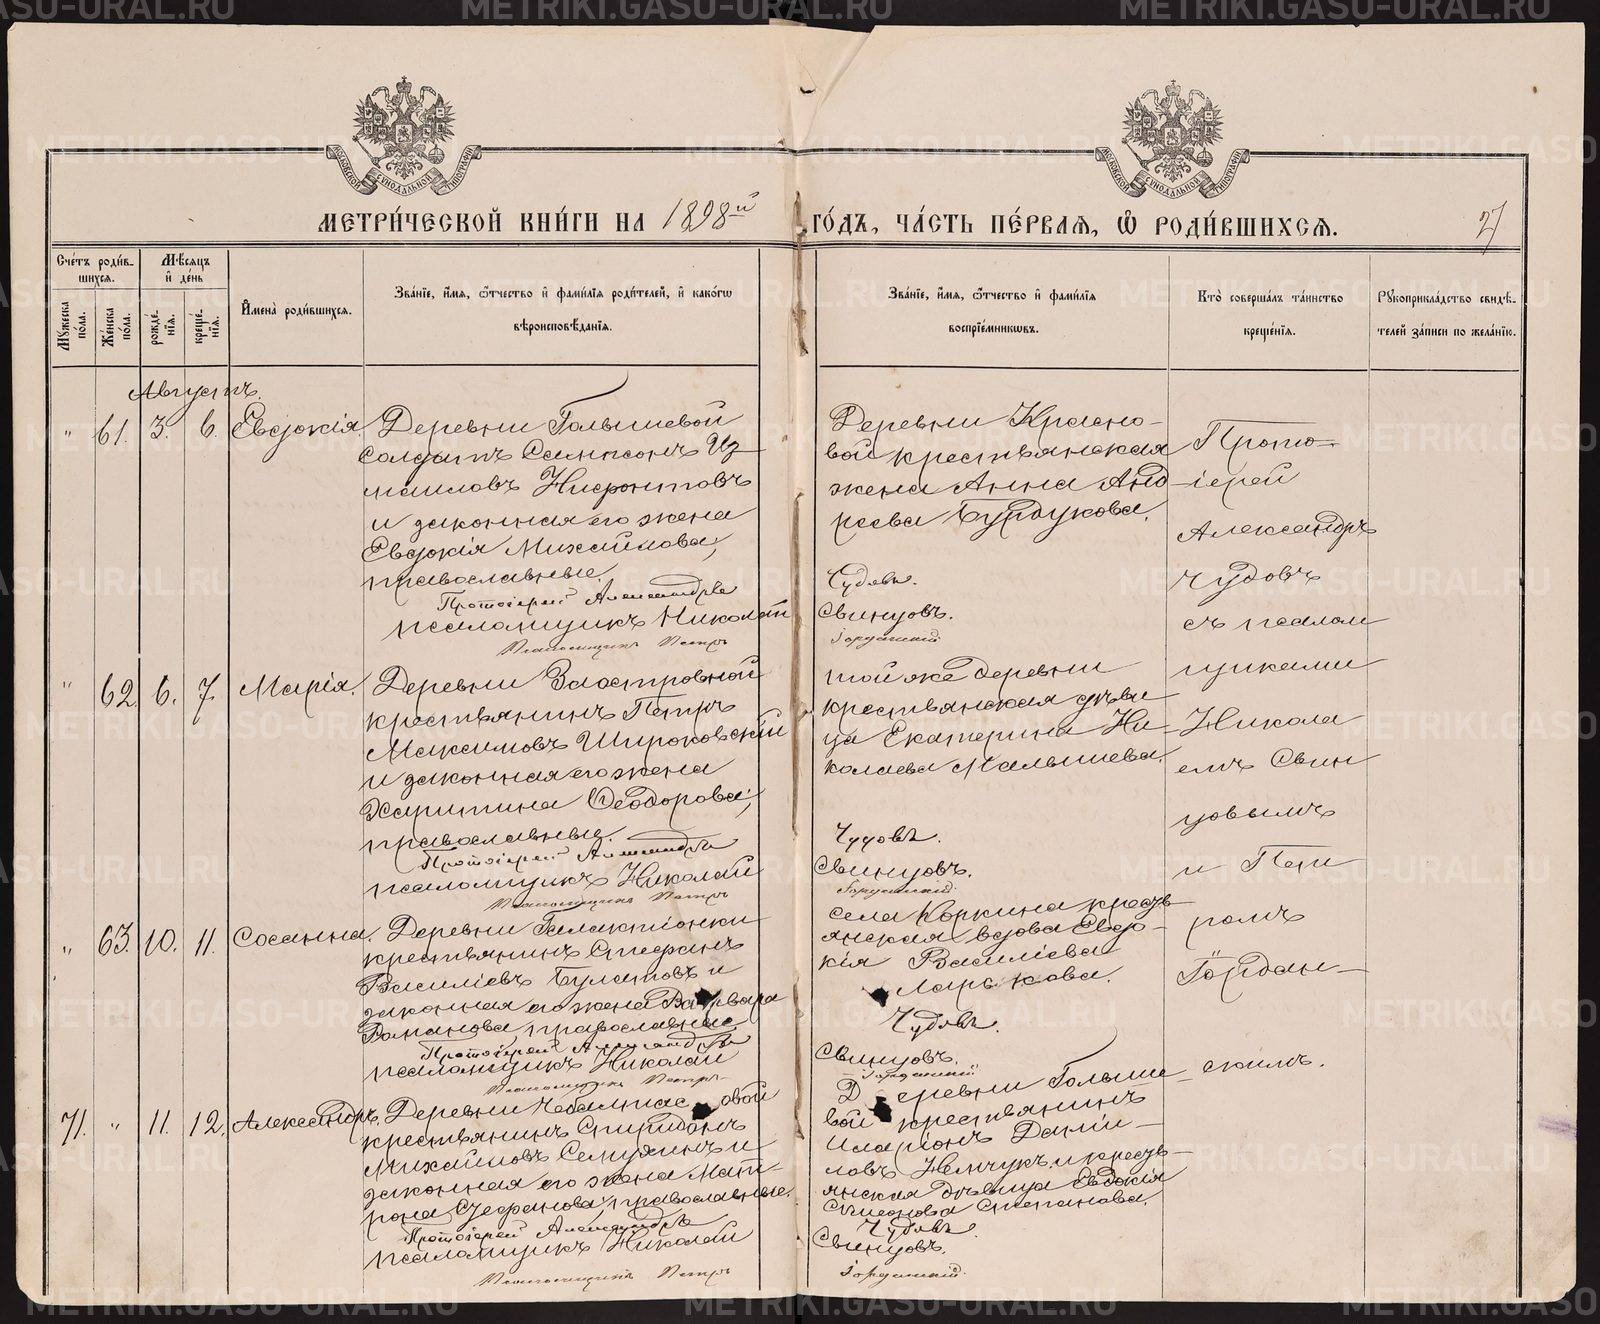 МЕТРИ́ЧЕСКОЙ КНИ́ГИ НА 1898й ГО́ДЪ, ЧА́СТЬ ПЕ́РВАЯ, Ѿ РОДИ́ВШИХСЯ.
27
МОСКОВСКОЙ СѴНОДАЛЬНОЙ ТИПОГРАФІИ
МОСКОВСКОЙ СѴНОДАЛЬНОЙ ТИПОГРАФІИ
Сче́тъ роди́в-
шихся.
Мꙋ́жеска по́ла.
Же́нска по́ла.
Мѣ́сяцъ
и҆ де́нь
рожде́-
нїя.
креще́-
нїя.
И҆мена̀ роди́вшихся.
Зва́нїе, и҆́мя, ѻ҆́тчество и҆ фами́лїя роди́телей, и҆ како́гѡ
вѣроисповѣ́данїя.
Зва́нїе, и҆́мя, ѻ҆́тчество и҆ фами́лїя
воспрїе́мникѡвъ.
Кто̀ соверша́лъ та́инство
креще́нїя.
Рꙋкоприкла́дство свидѣ́-
телей за́писи по жела́нїю.
Августъ.
" 61. 3. 6. Евдокія.
Деревни Голышевой
солдатъ Сампсонъ Из-
маиловъ Нифонтовъ
и законная его жена
Евдокія Михайлова,
православные.
Протоіерей Александръ
псаломщикъ Николай
Псаломщикъ Петръ
Деревни Красно-
вой крестьянская
жена Анна Анд-
реева Бурдукова.
Чудовъ.
Свинцовъ.
Горданскій.
Прото-
іерей
Александръ
Чудовъ
съ псалом
щиками
Никола
емъ Свин
цовымъ
и Пет
ромъ
Гордан-
скимъ.
" 62. 6. 7. Марія.
Деревни Заостровной
крестьянинъ Петръ
Максимовъ Широковскій
и законная его жена
Харитина Ѳеодорова,
православные.
Протоіерей Александръ
псаломщикъ Николай
Псаломщикъ Петръ
той же деревни
крестьянская дѣви-
ца Екатерина Ни-
колаева Малышева.
Чудовъ.
Свинцовъ.
Горданскій.
" 63. 10. 11. Сосанна.
Деревни Галактіонки
крестьянинъ Стефанъ
Василіевъ Булатовъ и
законная его жена Варвара
Романова, православные.
Протоіерей Александръ
псаломщикъ Николай
Псаломщикъ Петръ
села Коркина кресть-
янская вдова Евдо-
кія Василіева
Ларькова.
Чудовъ.
Свинцовъ.
Горданскій
71. " 11. 12. Александръ.
Деревни овой
крестьянинъ Спиридонъ
Михайловъ Семухинъ и
законная его жена Мат-
рона Стефанова, православные.
Протоіерей Александръ
псаломщикъ Николай
Псаломщикъ Петръ
Деревни Голыше-
вой крестьянинъ
Иларіонъ Даніи-
ловъ Немчукъ и кресть-
янская дѣвица Евдокія
Симеонова Степанова.
Чудовъ.
Свинцовъ.
Горданскій.
METRIKI.GASO-URAL.RU